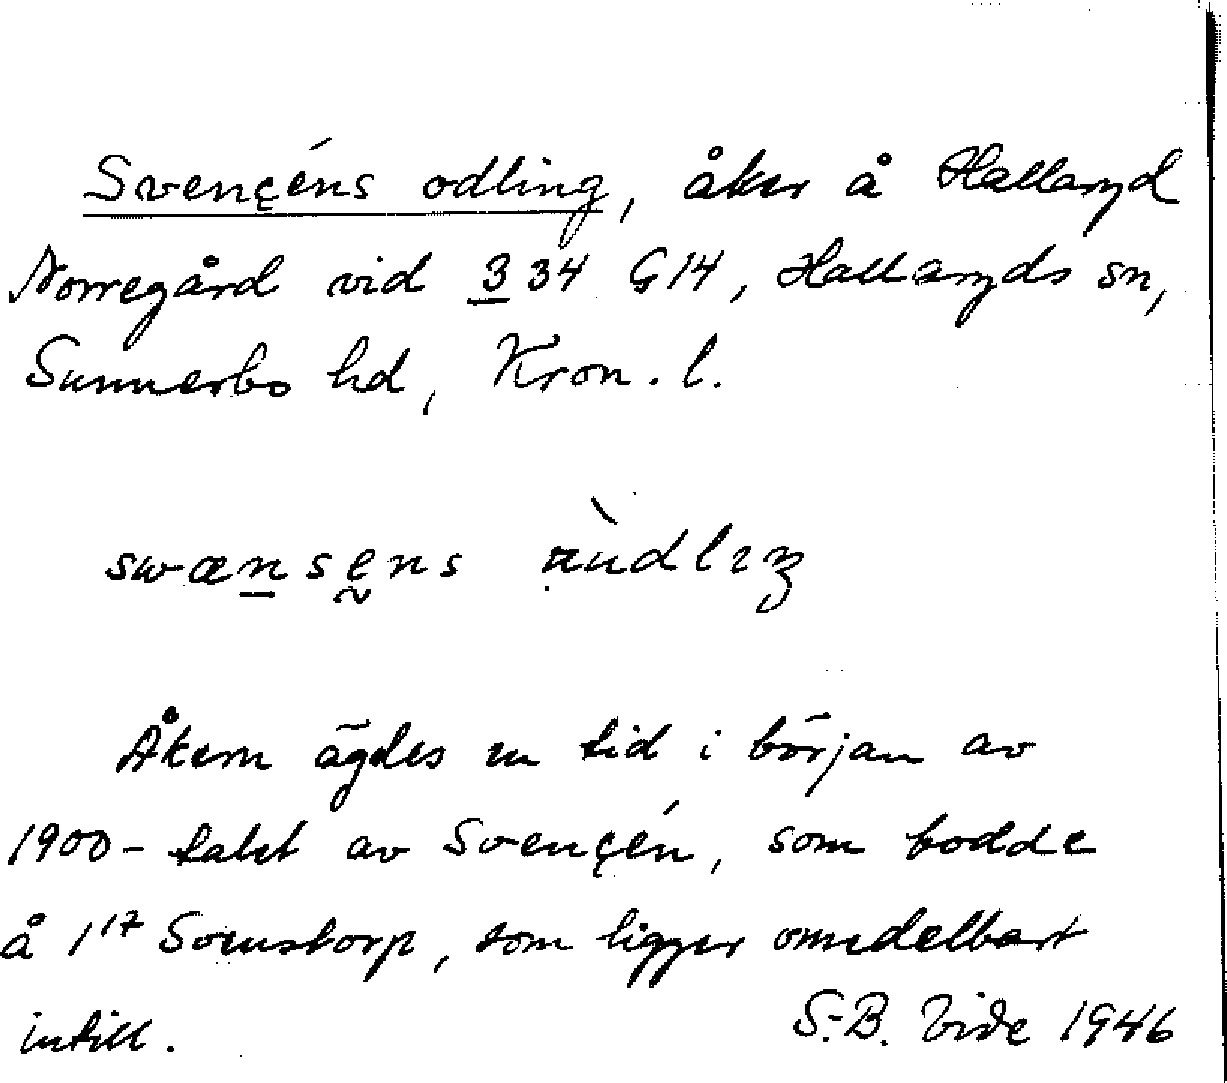 Svençéns odling, åker å Hallaryd
Norregård vid 334 G14, Hallaryds sn,
Sunnerbo hd, Kron. l.
swænsens
Åkern ägdes en tid i början av
1900-talet av Svençén, som bodde
å 1¹⁷ Svenstorp, som ligger omedelbart
intill. S.-B. Vide 1946